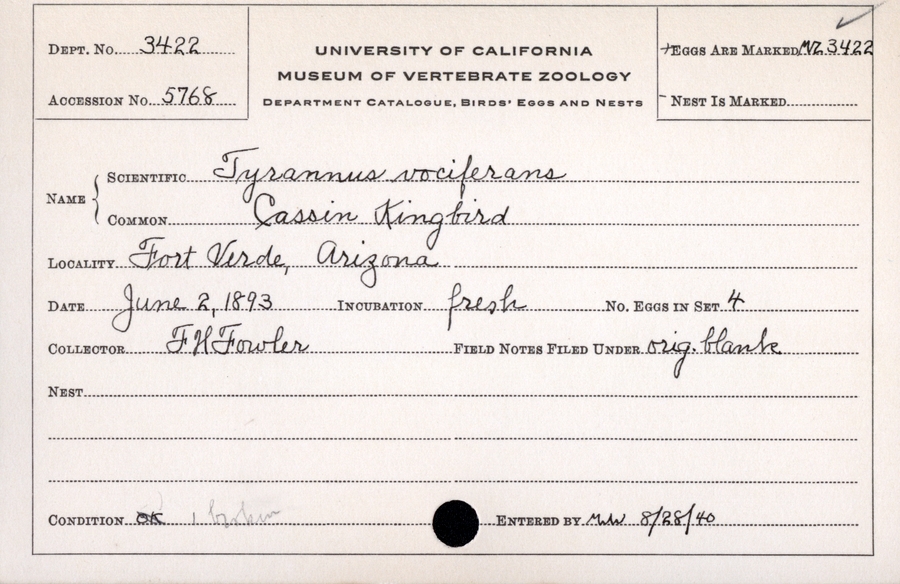 Dept. No. 3422
Accession No. 5768
UNIVERSITY OF CALIFORNIA
MUSEUM OF VERTEBRATE ZOOLOGY
Department Catalogue, Birds' Eggs and Nests
+Eggs Are Marked MVZ3422
- Nest Is Marked
Name
Scientific Tyrannus vociferans
Common Cassin Kingbird
Locality Fort Verde, Arizona
Date June 2, 1893 Incubation fresh No. Eggs in Set 4
Collector F H Fowler Field Notes Filed Under orig. blank
Nest
Condition OK 1 broken Entered by 8/28/40